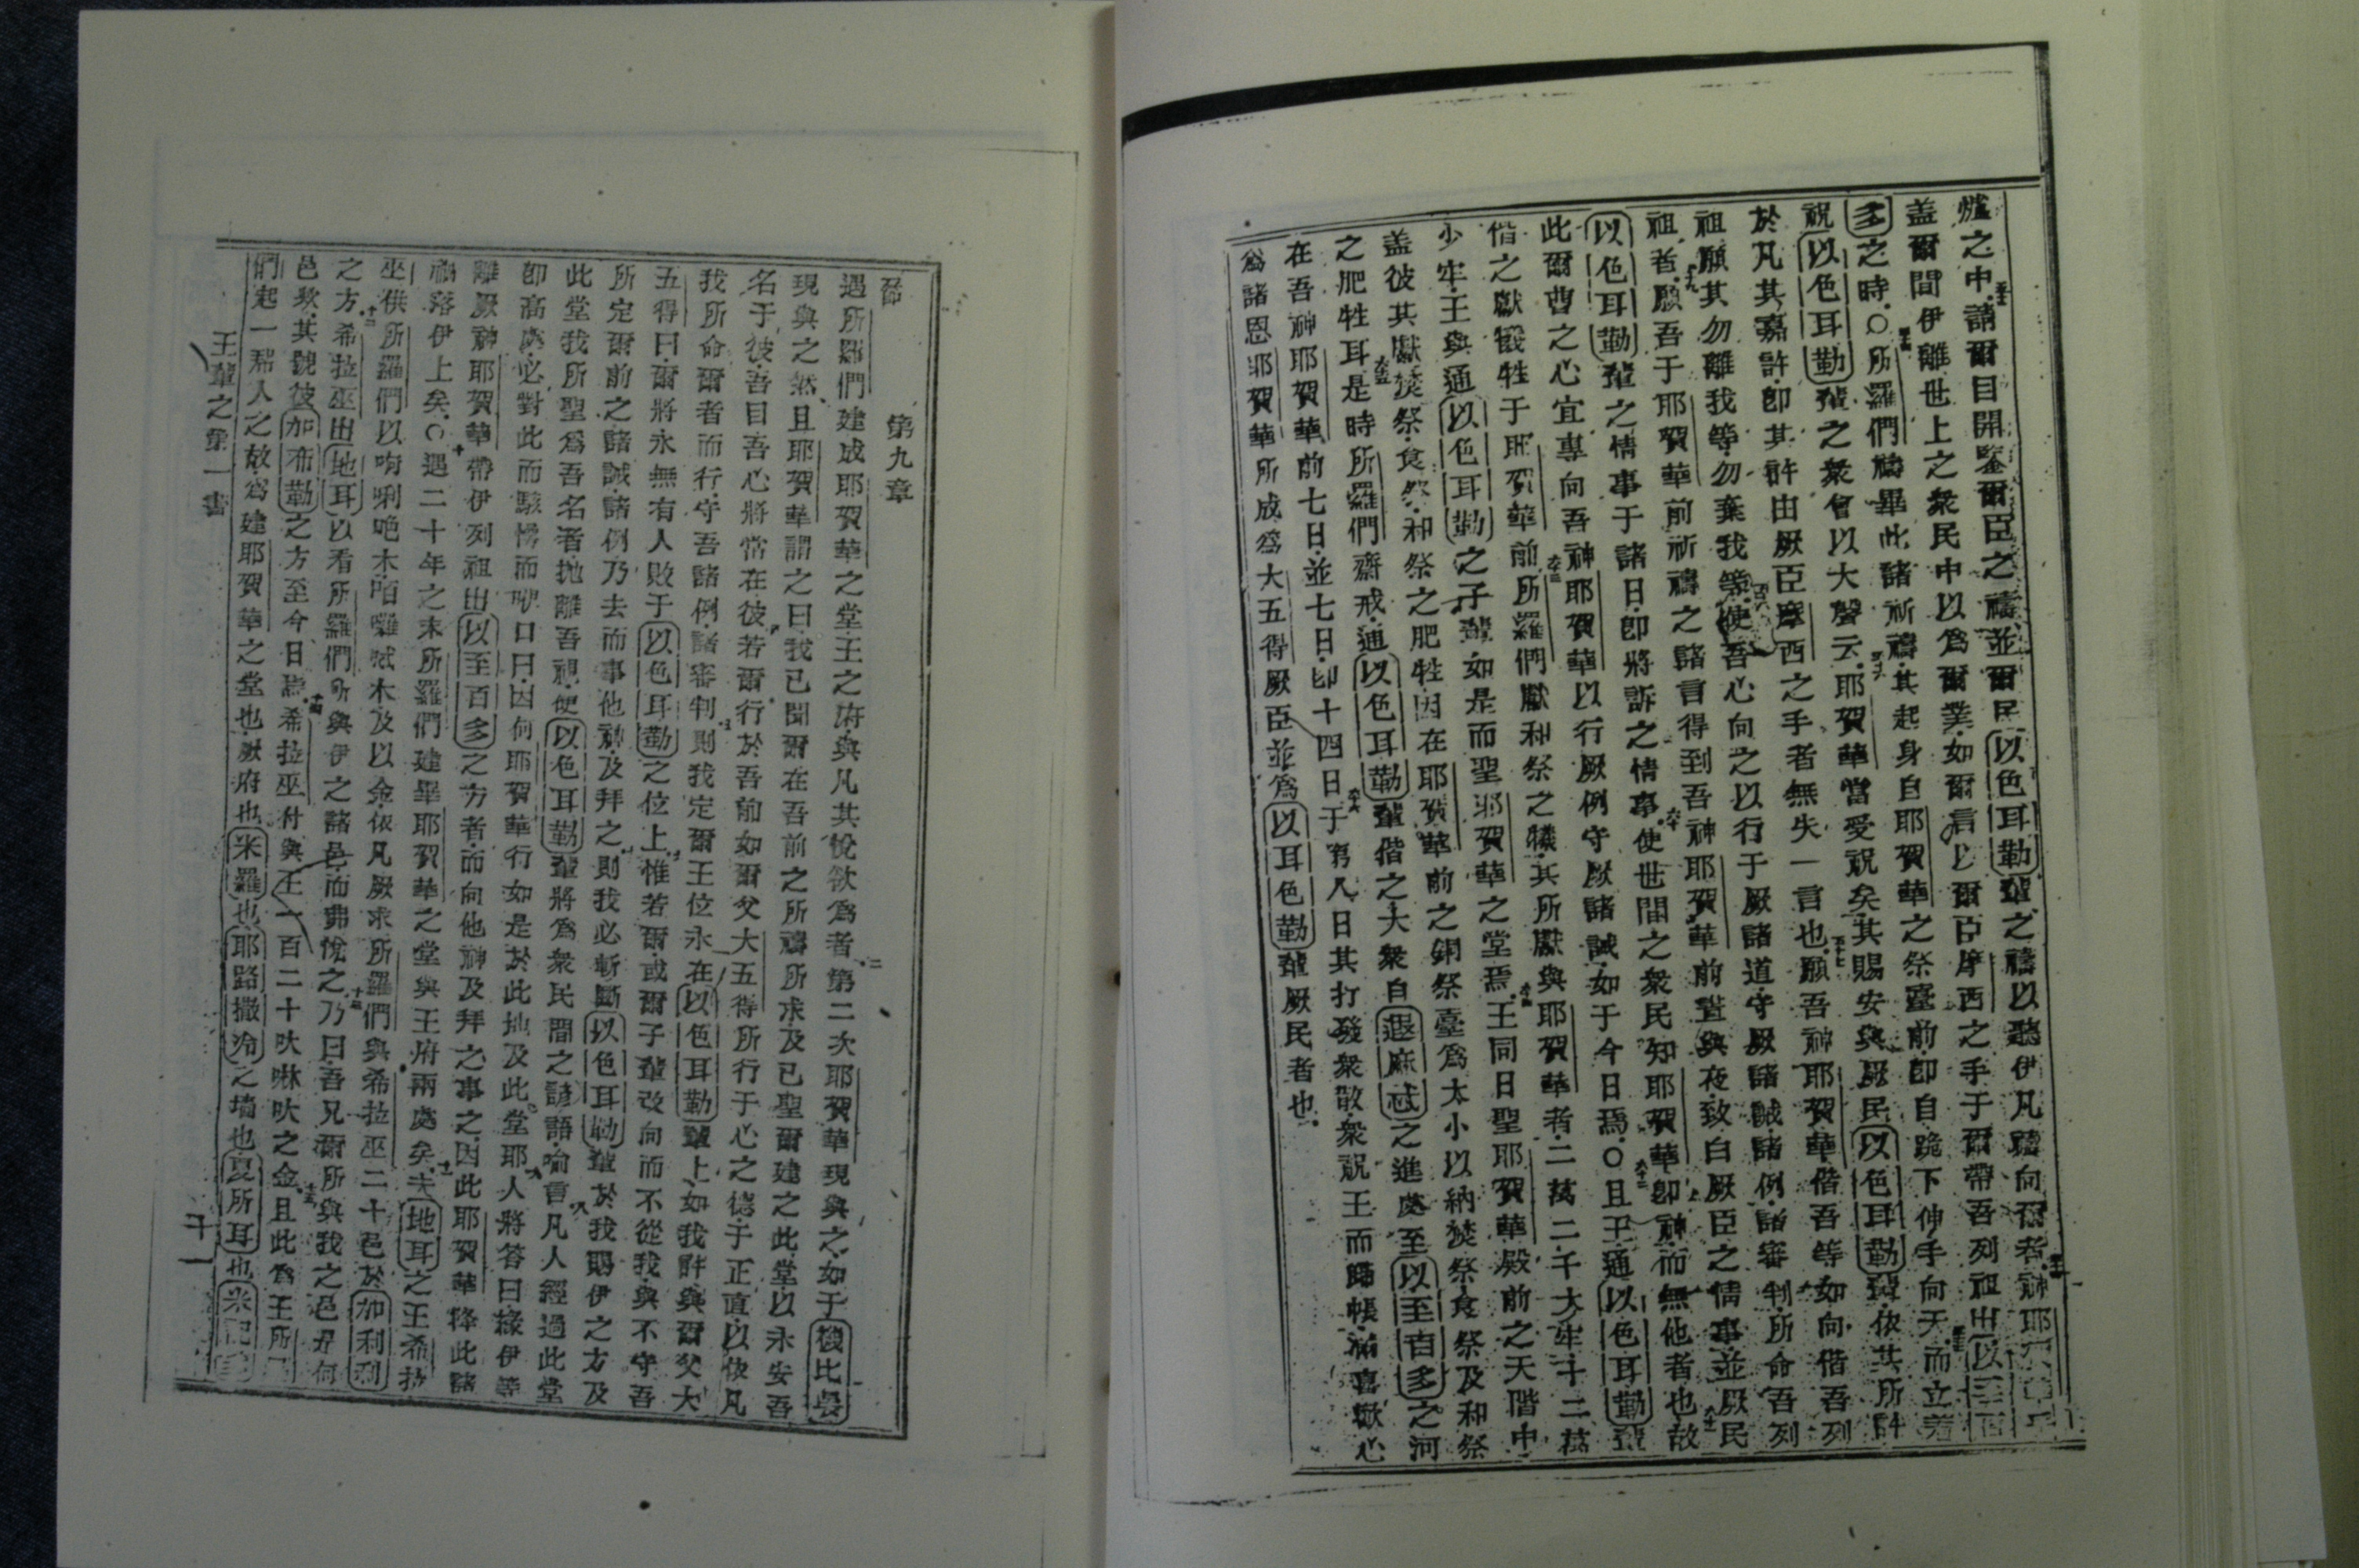 爐之中請爾目開鑒爾臣之禱並爾民以色耳勒輩之禱以聽伊凡聽向爾者神耶
蓋爾間伊離世上之衆民中以爲爾業如爾言以爾臣摩西之手于爾帶吾列祖出以至百
多之時〇所羅們禱畢此諸祈禱其起身自耶賀華之祭臺前卽自跪下伸手向天而立着
祝以色耳勒輩之衆會以大聲云耶賀華當受祝矣其賜安與厥民以色耳勒輩依其所許
於凡其嘉許卽其許由厥臣摩西之手者無失一言也願吾神耶賀華偕吾等如向偕吾列
祖願其勿離我等勿棄我等使吾心向之以行于厥諸道守厥諸誡諸例諸審判所命吾列
祖者願吾于耶賀華前祈禱之諸言得到吾神耶賀華前晝與夜致白厥臣之情事並厥民
以色耳勒輩之情事于諸日卽將訴之情事使世間之衆民知耶賀華卽神而無他者也故
此爾曹之心宜專向吾神耶賀華以行厥例守厥諸誡如于今日焉〇且王通以色耳勒輩
偕之獻犧牲于耶賀華前所羅們獻和祭之犧其所獻與耶賀華者二萬二千大牢十二萬
少牢王與通以色耳勒之子輩如是而聖耶賀華之堂焉王同日聖耶賀華殿前之天階中
蓋彼其獻焚祭食祭和祭之肥牲因在耶賀華前之銅祭臺爲太小以納焚祭食祭及和祭
之肥牲耳是時所羅們齋戒通以色耳勒輩偕之大衆自退麻忒之進處至以至百多之河
在吾神耶賀華前七日並七日卽十四日于第八日其打發衆散衆祝王而歸帳滿喜歡心
爲諸恩耶賀華所成爲大五得厥臣並爲以耳色勒輩厥民者也
第九章
遇所羅們建成耶賀華之堂王之府與凡其悅欲爲者第二次耶賀華現與之如于機比晏
現與之然且耶賀華謂之曰我已聞爾在吾前之所禱所求及已聖爾建之此堂以永安吾
名于彼吾目吾心將當在彼若爾行於吾前如爾父大五得所行于心之德于正直以依凡
我所命爾者而行守吾諸例諸審判則我定爾王位永在以色耳勒輩上如我許與爾父大
五得曰爾將永無有人敗于以色耳勒之位上惟若爾或爾子輩改向而不從我與不守吾
所定爾前之諸誡諸例乃去而事他神及拜之則我必斬斷以色耳勒輩於我賜伊之方及
此堂我所聖爲吾名者抛離吾視使以色耳勒輩將爲衆民間之諺語喻言凡人經過此堂
卽高處必對此而駭愕而唿口曰因何耶賀華行如是於此地及此堂耶人將答曰緣伊等
離厥神耶賀華帶伊列祖出以至百多之方者而向他神及拜之事之因此耶賀華降此諸
禍落伊上矣〇遇二十年之末所羅們建畢耶賀華之堂與王府兩處矣夫地耳之王希拉
巫供所羅們以唷唎吔木陌囉忒木及以金依凡厥求所羅們與希拉巫二十邑於加利利
之方希拉巫出地耳以看所羅們所與伊之諸邑而弗悅之乃曰吾兄爾所與我之邑是何
邑歟其號彼加布勒之方至今日焉希拉巫付與王一百二十吠啉吠之金且此爲王所羅
們起一瑞人之故爲建耶賀華之堂也厥府也米羅也耶路撒冷之墻也夏所耳也米記
王輩之第一書